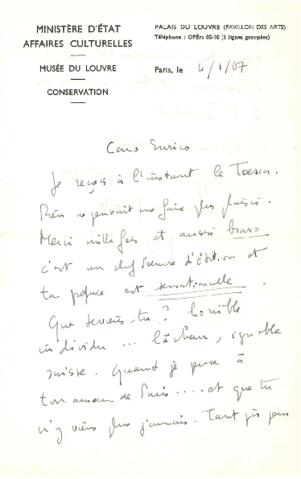 MINISTÈRE D'ÉTAT
AFFAIRES CULTURELLES
MUSÉE DU LOUVRE
CONSERVATION
PALAIS DU LOUVRE (PAVILLON DES ARTS)
Téléphone : OPÉra 82-10 (3 lignes groupées)
Paris, le 4/1/67
Caro Enrico
Je reçois à l'instant le Toesca.
Rien ne pouvait me faire plus plaisir.
Merci mille fois et aussi bravo
c'est un chef d'oeuvre d'édition et
ta préface est sensationnelle.
Que deviens-tu ? horrible
individu ... lâcheur, ignoble
suisse. Quand je pense à
ton amour de Paris .... et que tu
n'y viens plus jamais. Tant pis pour